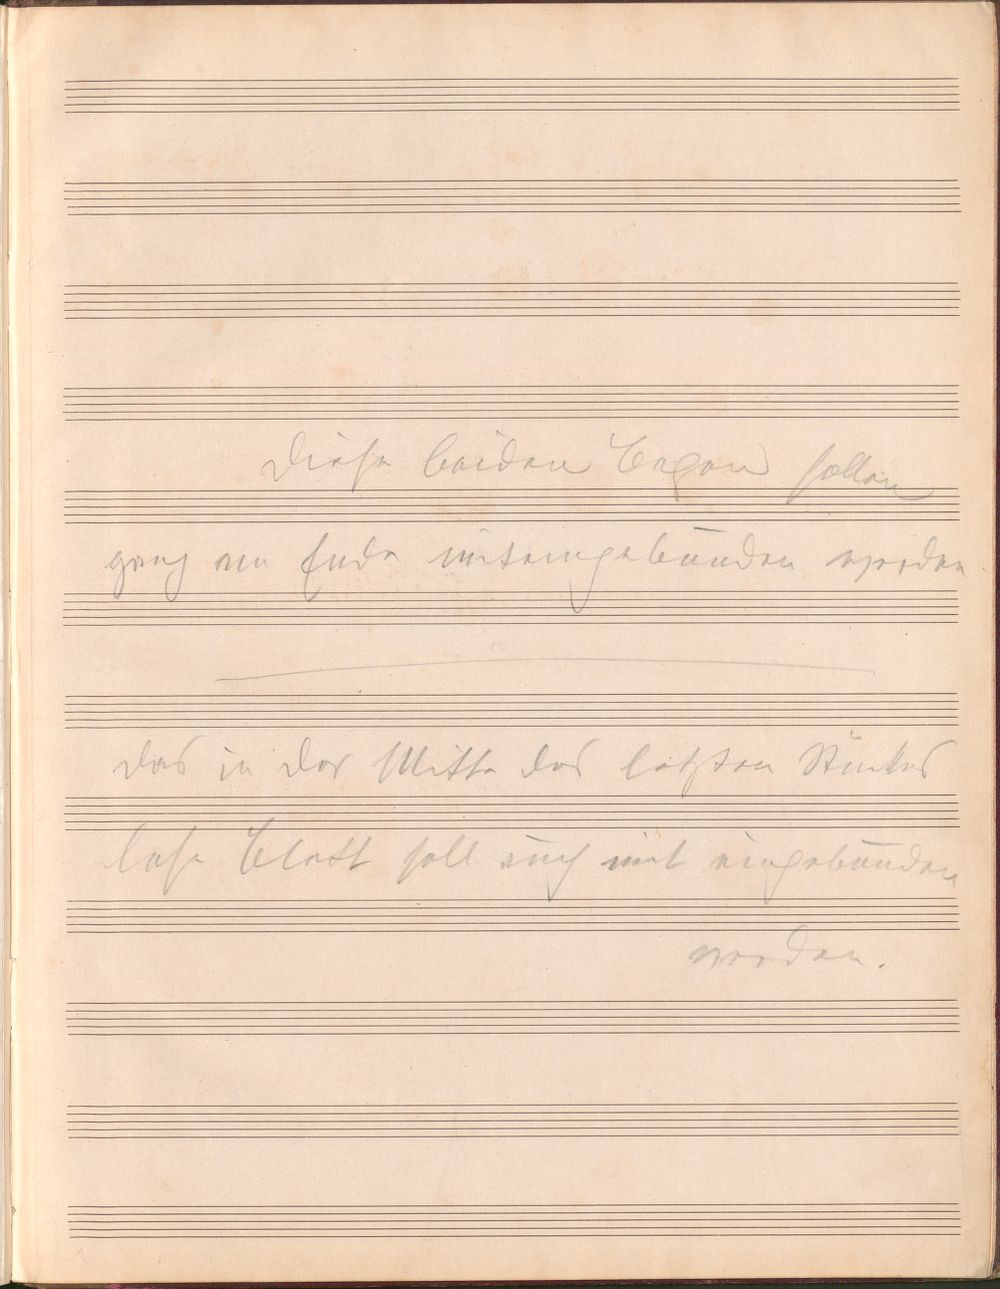 Diese beiden Bogen sollen
ganz am Ende miteingebunden werden.
das in der Mitte des letzten Stückes
lose Blatt soll auch mit eingebunden
werden.